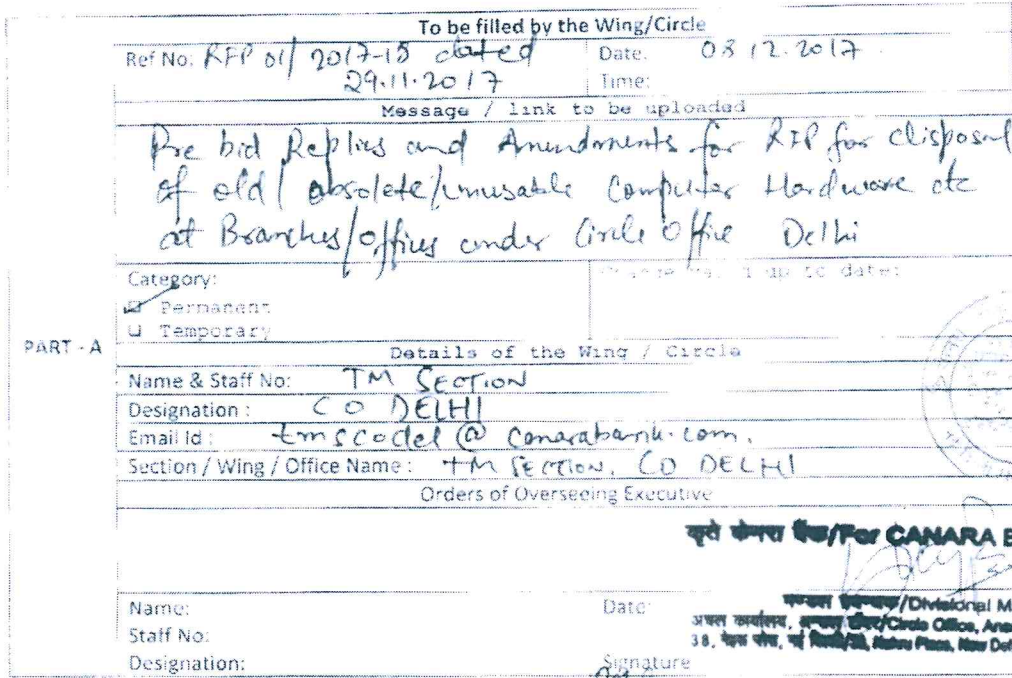 To be filled by the Wing/Circle
Ref No: RFP 01/ 2017-18 dated
29.11.2017
Date. 08 12.2017
Time:
Message / link to be uploaded
Pre bid Replies and Amendments for RFP for disposal
of old/ obsolete/unusable Computer Hardware etc
at Branches/offices under Circle Office Delhi
Category:
up to date:
Permanent
Temporary
PART - A
Details of the Wing / Circle
Name & Staff No: TM SECTION
Designation : CO DELHI
Email Id : tmscodel@canarabank.com.
Section / Wing / Office Name : TM SECTION, CO DELHI
Orders of Overseeing Executive
कृते केनरा बैंक/For CANARA B
/Divisional M
अंचल कार्यालय, /Circle Office, Ans
38, Nehru Place, New Del
Name:
Date:
Staff No:
Designation:
Signature